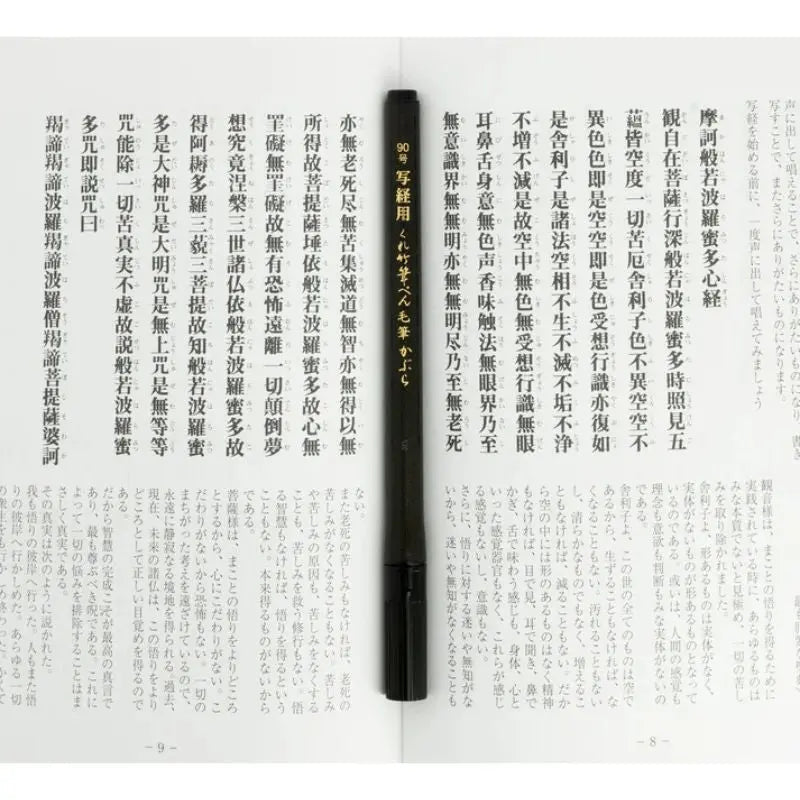 声に出して唱えることで、さらにありがたいものになり、書き
写すことで、またさらにありがたいものになります。
写経を始める前に、一度声に出して唱えてみましょう
摩訶般若波羅蜜多心経
観自在菩薩行深般若波羅蜜多時照見五
蘊皆空度一切苦厄舎利子色不異空空不
異色色即是空空即是色受想行識亦復如
是舎利子是諸法空相不生不滅不垢不浄
不増不減是故空中無色無受想行識無眼
耳鼻舌身意無色声香味触法無眼界乃至
無意識界無無明亦無無明尽乃至無老死
観音様は、まことの悟りを得るために
実践されている時に、あらゆるものは
みな本質でないと見極め、一切の苦し
みを取り除かれました。
舎利子よ、形あるものは実体がなく、
実体がないものが形あるものとなって
いるのである。或いは、人間の感覚も
理念も意欲も判断もみな実体がないの
である。
舎利子よ、この世の全てのものは空で
あるから、生ずることもなければ、な
くなることもない。汚れることもない
し、清らかなものでもなく、増えるこ
ともなければ、減ることもない。だか
ら空の中には形のあるものはなく精神
もなければ、目で見、耳で聞き、鼻で
かぎ、舌で味わう感じも、身体、心と
いった感覚器官もなく、これらが感じ
る感覚もないし、意識もない。
さらに、悟りに対する迷いや無知がな
いから、迷いや無知がなくなることも
- 8 -
90号 写経用 くれ竹筆ぺん 毛筆 かぶら
亦無老死尽無苦集滅道無智亦無得以無
所得故菩提薩埵依般若波羅蜜多故心無
罣礙無罣礙故無有恐怖遠離一切顛倒夢
想究竟涅槃三世諸仏依般若波羅蜜多故
得阿耨多羅三藐三菩提故知般若波羅蜜
多是大神咒是大明咒是無上咒是無等等
咒能除一切苦真実不虚故説般若波羅蜜
多咒即説咒曰
羯諦羯諦波羅羯諦波羅僧羯諦菩提薩婆訶
ない。
また老死の苦しみもなければ、老死の
苦しみがなくなることもない。苦しみ
や苦しみの原因も、苦しみをなくする
ことも、苦しみを救う修行もない。悟
る智慧もなければ、悟りを得るという
こともない。本来得るものがないから
である。
菩薩様は、まことの悟りをよりどころ
とするから、心にこだわりがない。こ
だわりがないから恐怖もない。一切の
まちがった考えを遠ざけているので、
永遠に静寂なる境地を得られる。過去、
現在、未来の諸仏は、この悟りをより
どころとして正しい目覚めを得られる。
である。
だから智慧の完成こそが最高の真言で
あり、最も尊ぶべき呪である。これに
よって一切の悩みを排除することはま
さしく真実である。
その真実は次のように説かれた。
我も悟りの彼岸へ行った。人もまた悟
りの彼岸へ行かしめた。あらゆる一切
- 9 -